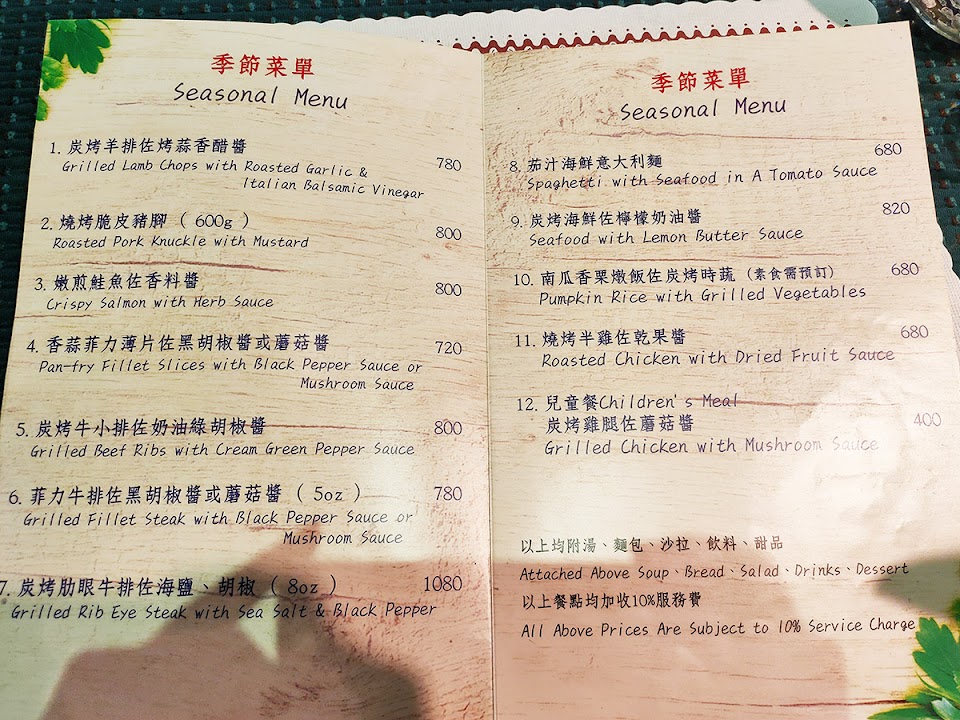 季節菜單
Seasonal Menu
1. 炭烤羊排佐烤蒜香醋醬
Grilled Lamb Chops with Roasted Garlic & 780
Italian Balsamic Vinegar
2. 燒烤脆皮豬腳 ( 600g )
Roasted Pork Knuckle with Mustard 800
3. 嫩煎鮭魚佐香料醬
Crispy Salmon with Herb Sauce 800
4. 香蒜菲力薄片佐黑胡椒醬或蘑菇醬 720
Pan-fry Fillet Slices with Black Pepper Sauce or
Mushroom Sauce
5. 炭烤牛小排佐奶油綠胡椒醬 800
Grilled Beef Ribs with Cream Green Pepper Sauce
6. 菲力牛排佐黑胡椒醬或蘑菇醬 ( 5oz ) 780
Grilled Fillet Steak with Black Pepper Sauce or
Mushroom Sauce
7. 炭烤肋眼牛排佐海鹽、胡椒 ( 8oz ) 1080
Grilled Rib Eye Steak with Sea Salt & Black Pepper
季節菜單
Seasonal Menu
8. 茄汁海鮮意大利麵 680
Spaghetti with Seafood in A Tomato Sauce
9. 炭烤海鮮佐檸檬奶油醬 820
Seafood with Lemon Butter Sauce
10. 南瓜香栗燉飯佐炭烤時蔬 (素食需預訂) 680
Pumpkin Rice with Grilled Vegetables
11. 燒烤半雞佐乾果醬 680
Roasted Chicken with Dried Fruit Sauce
12. 兒童餐Children's Meal
炭烤雞腿佐蘑菇醬 400
Grilled Chicken with Mushroom Sauce
以上均附湯、麵包、沙拉、飲料、甜品
Attached Above Soup、Bread、Salad、Drinks、Dessert
以上餐點均加收10%服務費
All Above Prices Are Subject to 10% Service Charge